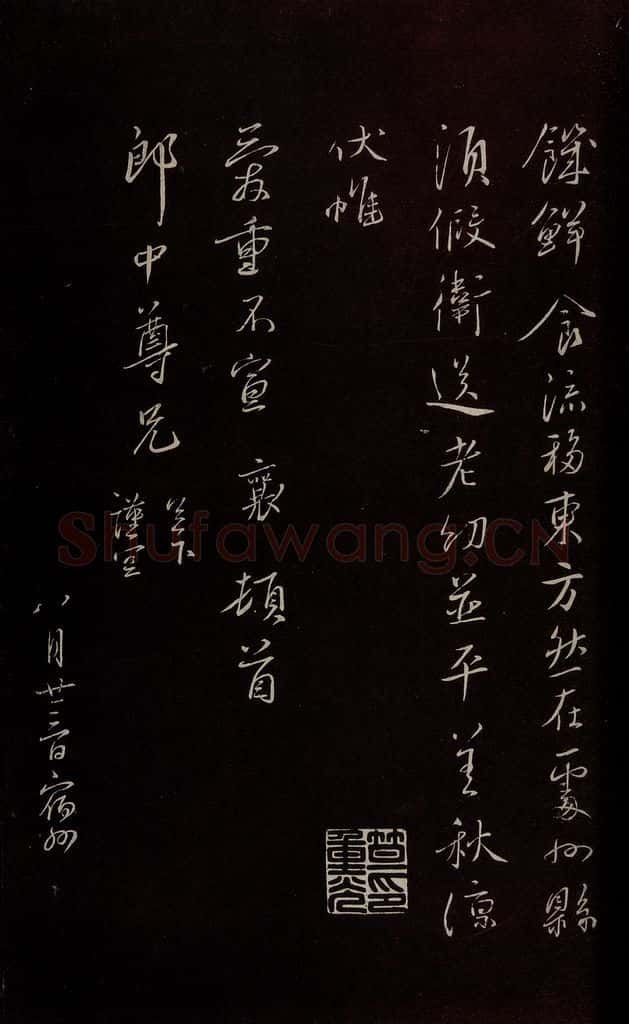 饑鮮食流移東方然在處州縣
須假衛送老幼並平善秋涼
伏惟
愛重不宣 襄 頓首
郎中尊兄 足下
謹空
八月廿三日宿州
笪重光印
Shufawang.CN